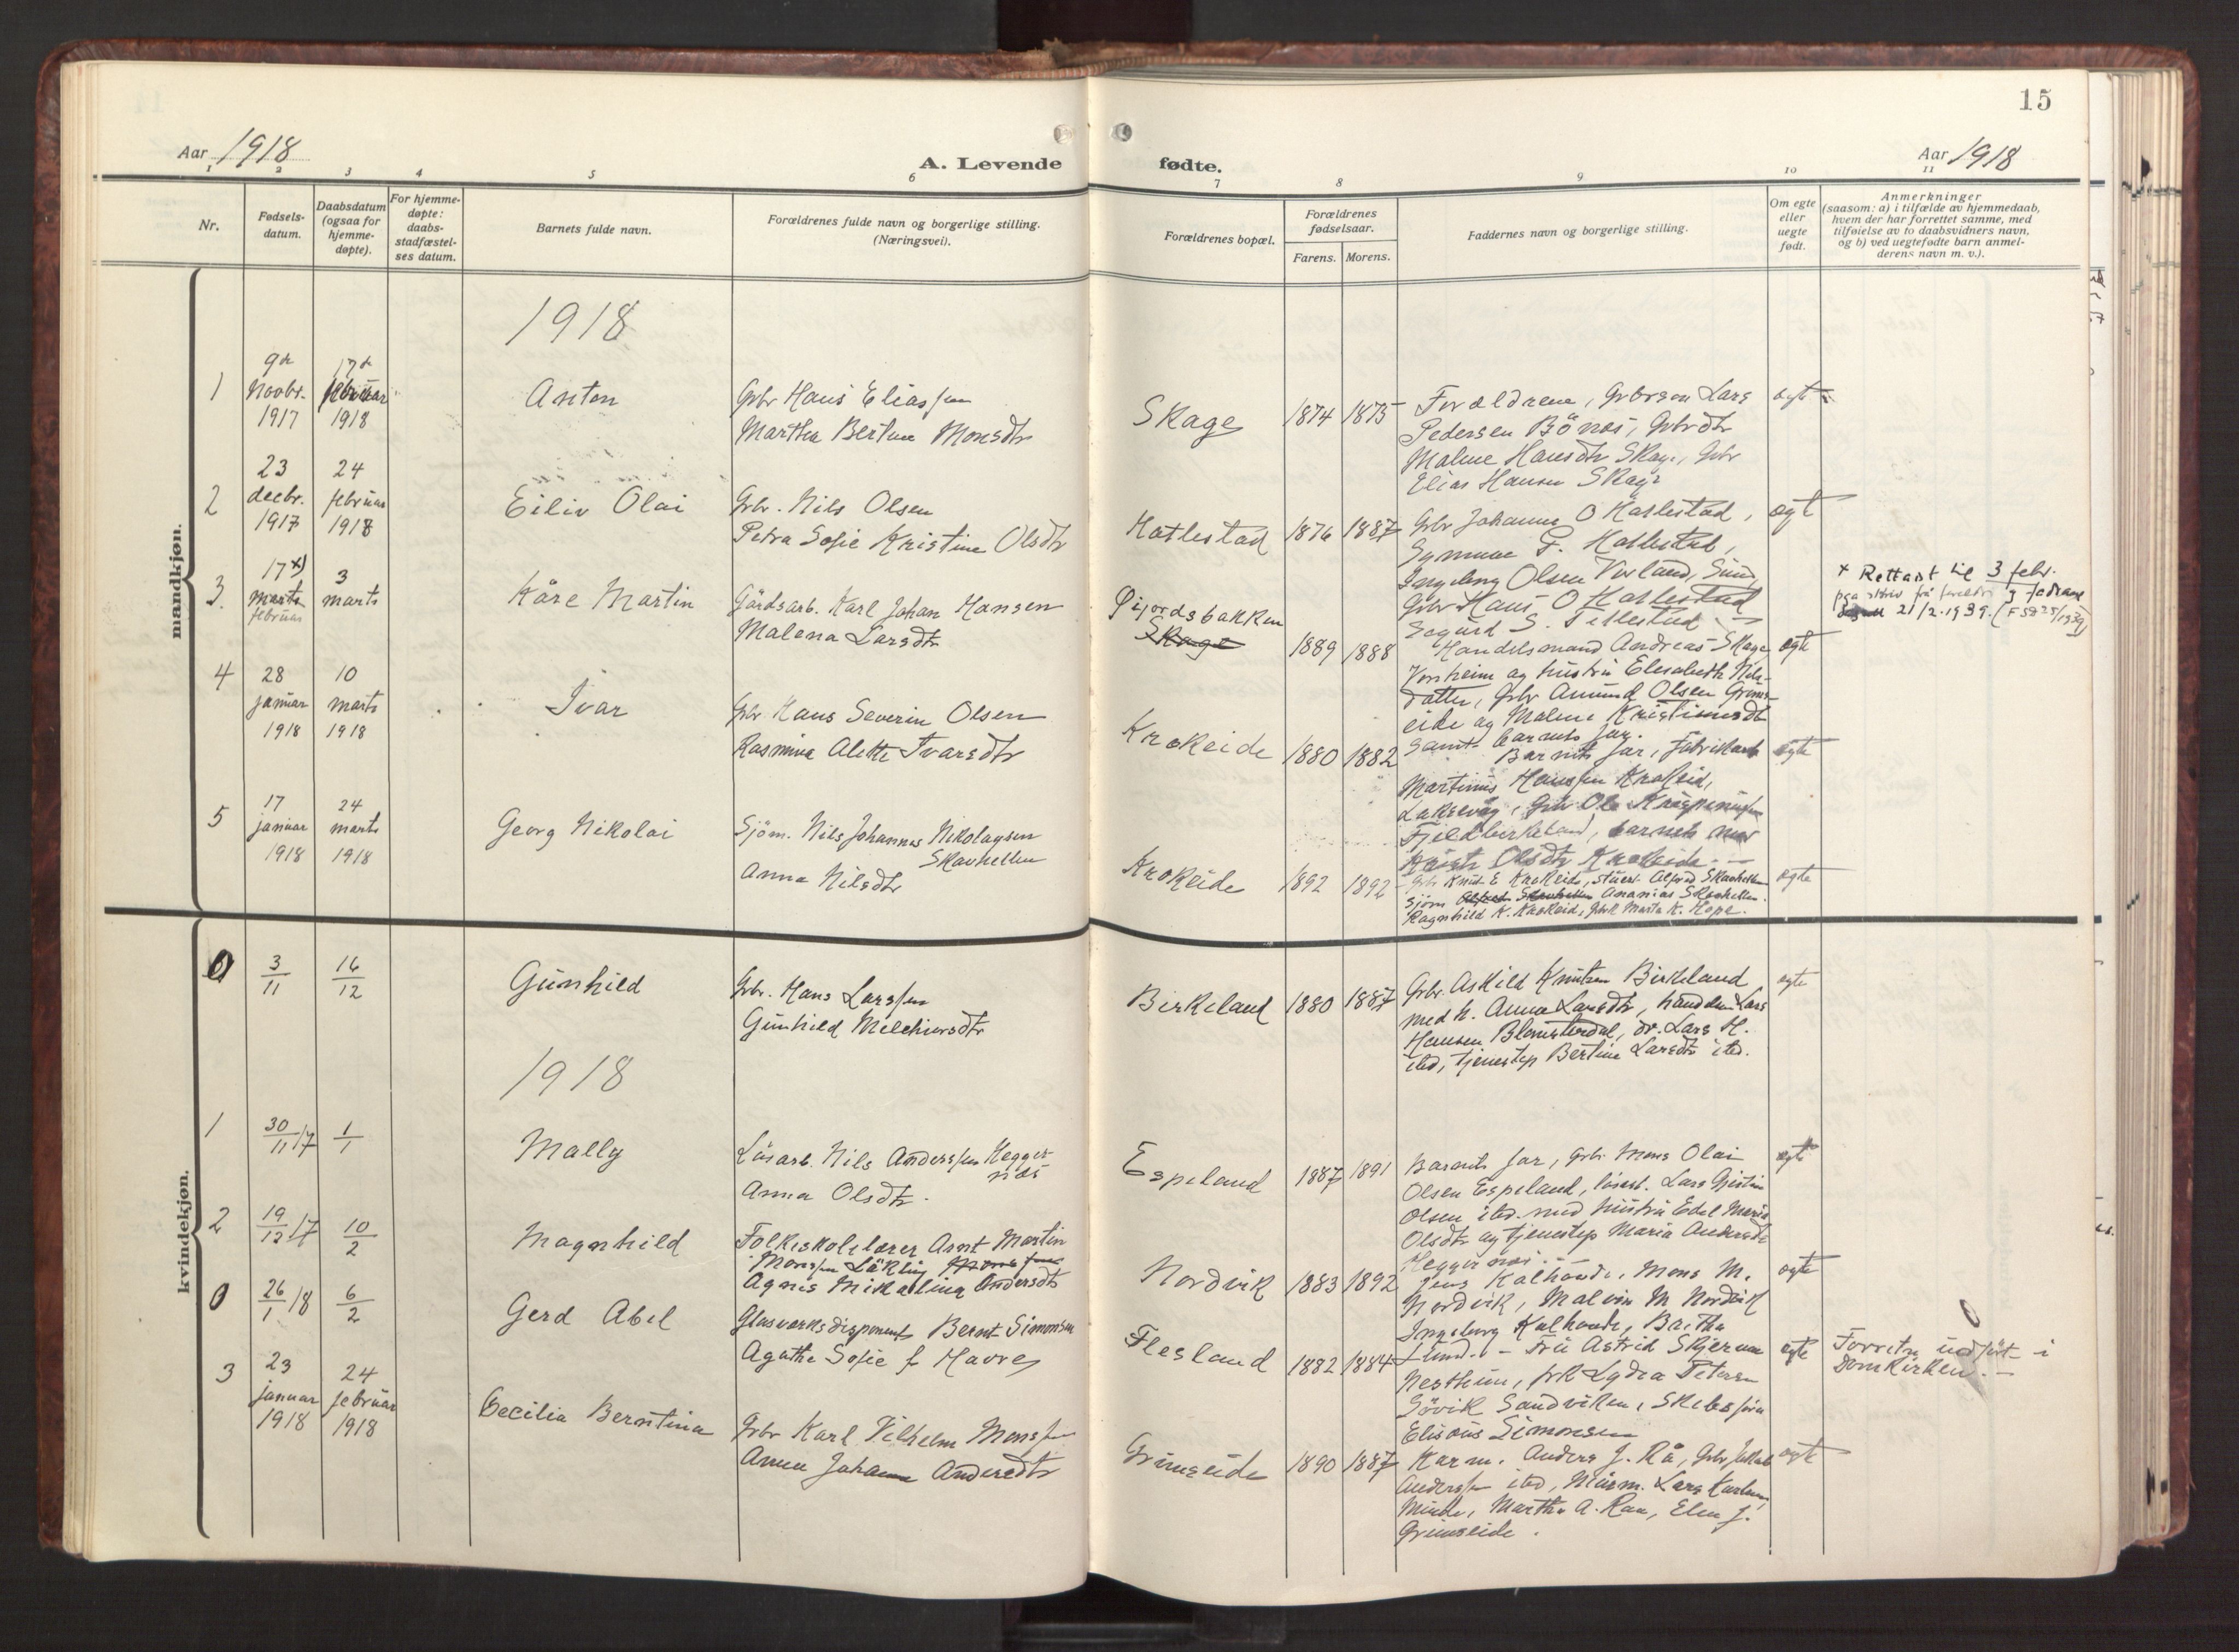 15
Aar 1918
A. Levende
fødte.
Aar 1918
1 2 3 4 5 6 7 8 9 10 11
Nr.
Fødsels-
datum.
Daabsdatum
(ogsaa for
hjemme-
døpte).
For hjemme-
døpte:
daabs-
stadfæstel-
ses datum.
Barnets fulde navn.
Forældrenes fulde navn og borgerlige stilling.
(Næringsvei).
Forældrenes bopæl.
Forældrenes
fødselsaar.
Farens. Morens.
Faddernes navn og borgerlige stilling.
Om egte
eller
uegte
født.
Anmerkninger
(saasom: a) i tilfælde av hjemmedaab,
hvem der har forrettet samme, med
tilføielse av to daabsvidners navn,
og b) ved uegtefødte barn anmel-
derens navn m. v.).
mandkjøn.
1918
1
9de
Novbr.
1917
17de
februar
1918
Anton
Gbr Hans Eliassen
Martha Bertine Monsdtr
Skage
1874 1875
Foreldrene, Gbrsøn Lars
Pedersen Bönes, Gbrdtr
Malene Hansdtr Skage, Gbr
Elias Hansen Skage
egte
2
23
decbr.
1917
24
februar
1918
Eiliv Olai
Gbr. Nils Olsen
Petra Sofie Kristine Olsdtr
Hatlestad
1876 1887
Gbr Johannes O Hatlestad,
F. Hatlestad,
Ingeborg Olsen
Gbr Hans O Hatlestad
Sogurd S. Tellestad
egt
3.
17 x)
marts
februar
3
marts
Kåre Martin
Gårdsarb. Karl Johan Hansen
Malena Larsdtr
Øifjordsbakken
Skage
1889 1888
Handelsmand Andreas Skage
og hustru Elesabeth Nils-
datter, Gbr Amund Olsen Grims-
eide og Malene
samt barnets far.
egte
x Rettast til 3 febr.
pga skriv frå
21/2.1939.
4
28
januar
1918
10
marts
1918
Ivar
Gbr Hans Severin Olsen
Rasmine Alette Ivarsdtr
Krokeide
1880 1882
Barnets far, fabrikarb
Martinus Hanssen Krokeid,
Laksevåg, Gbr Ole
Fjeldbirkeland, barnets mor
Olsdtr Krokeide
egte
5
17
januar
1918
24
marts
1918
Georg Nikolai
Sjöm. Nils Johannes Nikolaysen
Skavhellen
Anna Nilsdtr
Krokeide
1892 1892
Gbr Knut E Krokeide, stuert Alfred Skavhellen
Sjöm Ananias Skavhellen.
Ragnhild K. Krokeid, Marta K. Hope.
egte
kvindekjøn.
0
3/11
16/12
Gunhild
Gbr. Hans Larssen
Gunhild Melchiorsdtr
Birkeland
1880 1887
Gbr. Askild Knutsen Birkeland
med h. Anna Larsdtr, Lars
Hansen Blomsterdal, dr. Lars H.
ibd, tjenestep Bertine Larsdtr ibd.
egte
1918
1
30/11 17
1/1
Mally
Lösarb. Nils Anderssen Hegger-
nes
Anna Olsdtr.
Espeland
1887 1891
Barnets far, Gbr. Mons Olai
Olsen Espeland, lösarb. Lars
Olsen ibd. med hustru Edel Maria
Olsdtr og tjenestep Maria Andersdtr
Heggernes.
egte
2
19/12 17
10/2
Magnhild
Folkeskolelærer Arnt Martin
Monssen Läkling
Agnes Nikoline Andersdtr
Nordvik
1883 1892
Jens Kalhovde, Mons M.
Nordvik, Malvin M Nordvik
Ingeborg Kalhovde, Britha
Lund.
egte
0
26/1 18
6/2
Gerd Abel
Glasverksdisponent Bernt Simonsen
Agathe Sofie f. Havre
Flesland
1882 1884
Fru Astrid Skjerven
Nesttun, frk Lydia Petersen
Sövik Sandviken, Skibsförer
Simonsen
egte
Forretn udfört i
Domkirken.
3
23
januar
1918
24
februar
1918
Cecilia Berntina
Gbr Karl Vilhelm Monssen
Anna Johanne Andersdtr
Grimseide
1890 1887
Karm. Anders J. Rå, Gbr Jakob
Anderssen ibd, Murm. Lars Karlsen,
Minde, Martha A. Raa, Elen J.
Grimseide.
egte